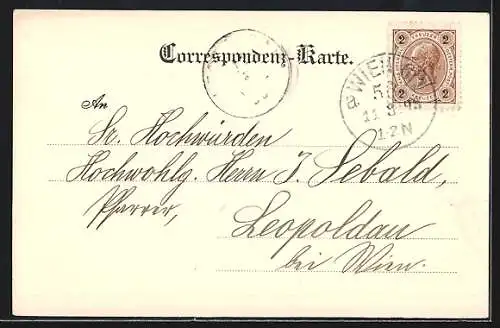 Correspondenz-Karte.
2 2
WIEN
11 3 98
1-2 N
An
Sr. Hochwürden
Hochwohlg. Herrn J. Sebald,
Pfarrer,
Leopoldau
bei Wien.